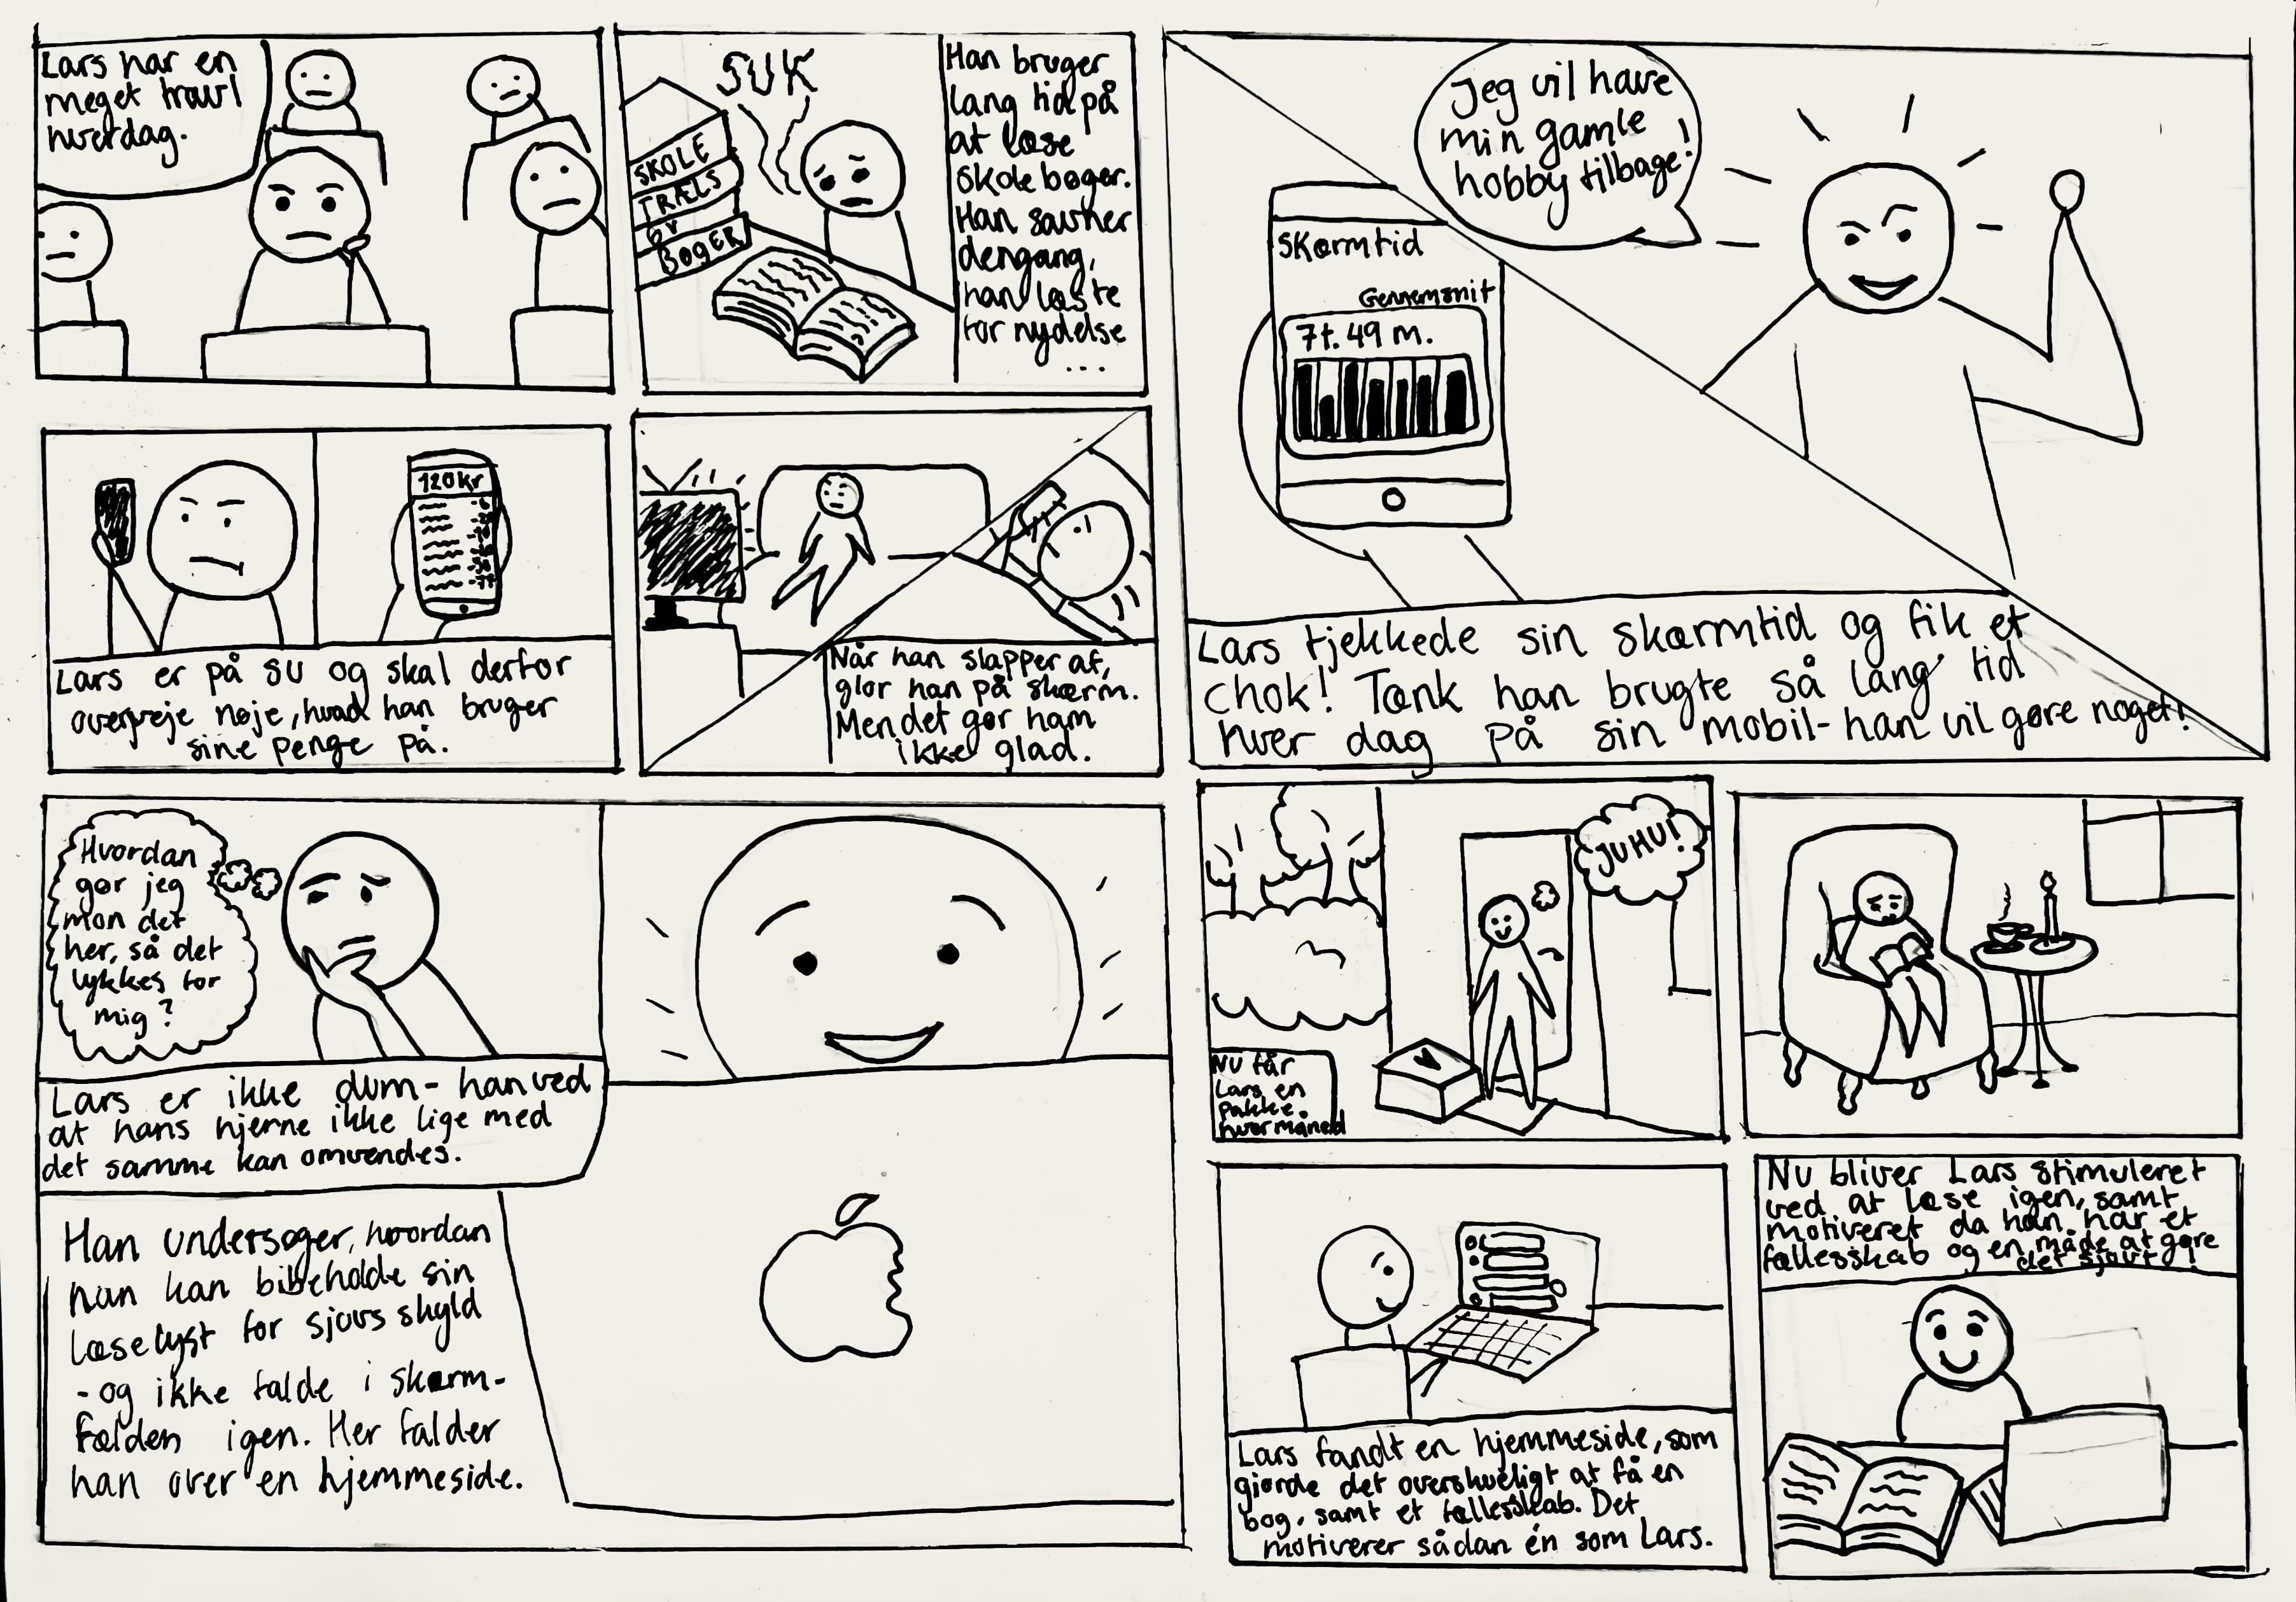 Lars har en
meget travl
hverdag.
SUK
SKOLE
TRÆLS
6V
BØGER
Han bruger
lang tid på
at læse
skolebøger.
Han savner
dengang,
han læste
for nydelse
...
Jeg vil have
min gamle
hobby tilbage!
Skærmtid
Gennemsnit
7t. 49 m.
Lars tjekkede sin skærmtid og fik et
chok! Tænk han brugte så lang tid
hver dag på sin mobil-han vil gøre noget!
120kr
Lars er på su og skal derfor
overveje nøje, hvad han bruger
sine penge på.
Når han slapper af,
glor han på skærm.
Men det gør ham
ikke glad.
Hvordan
gør jeg
mon det
her, så det
lykkes for
mig?
Lars er ikke dum- han ved
at hans hjerne ikke lige med
det samme kan omvendes.
Han undersøger, hvordan
han kan bibeholde sin
læselyst for sjovs skyld
- og ikke falde i skærm-
fælden igen. Her falder
han over en hjemmeside.
JUHU!
Nu får
Lars en
pakke.
hver måned
Lars fandt en hjemmeside, som
gjorde det overskueligt at få en
bog, samt et fællesskab. Det
motiverer sådan én som Lars.
Nu bliver Lars stimuleret
ved at læse igen, samt
motiveret da han har et
fællesskab og en måde at gøre
det sjovt!